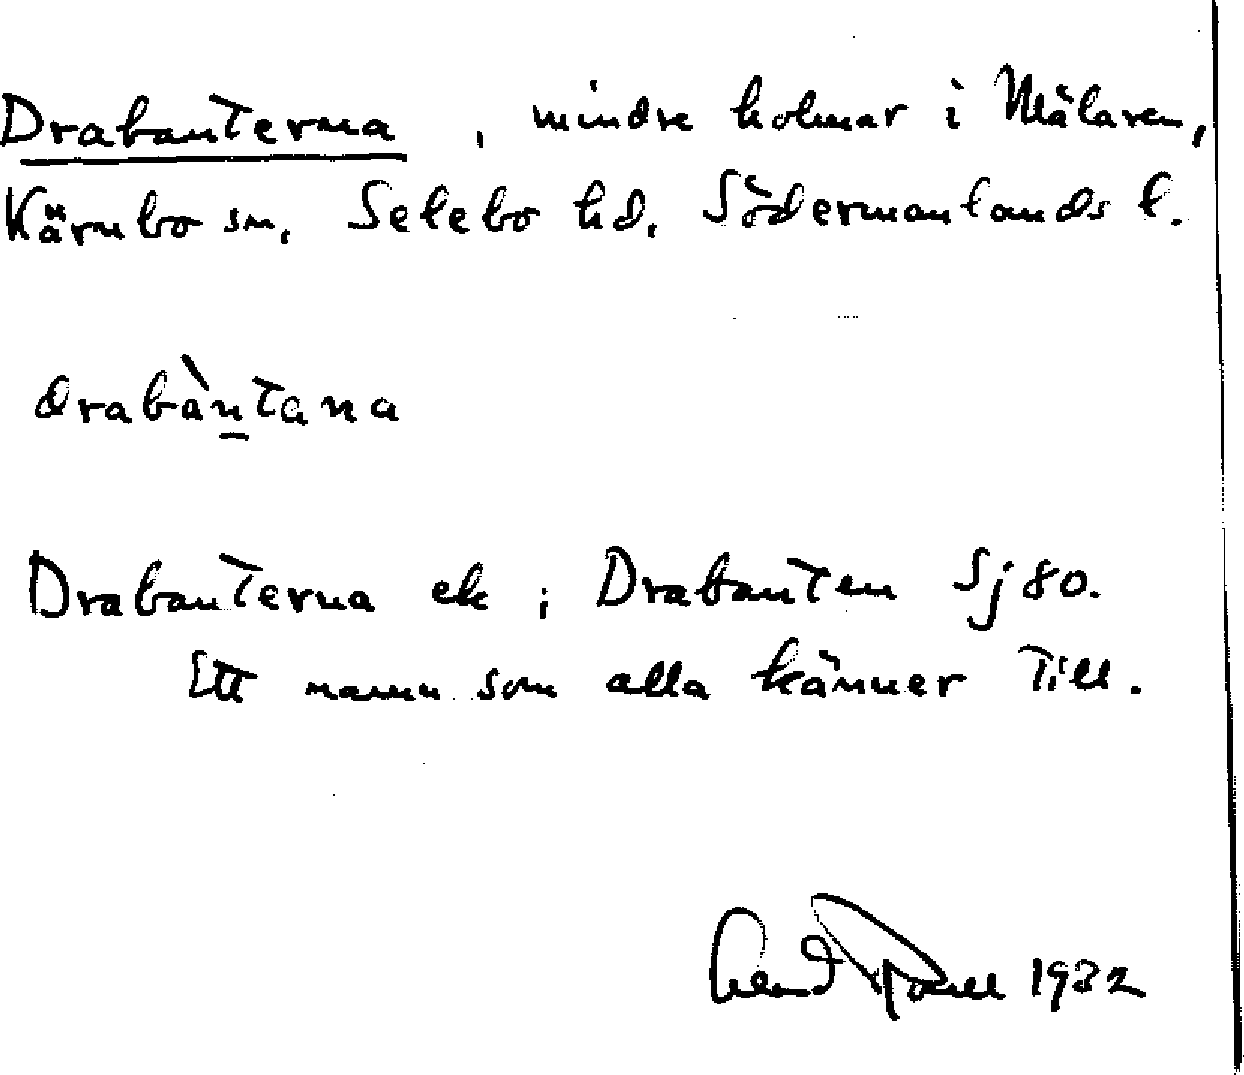 Drabanterna , mindre holmar i Mälaren,
Kärnbo sn, Selebo hd, Södermanlands l.
drabàntana
Drabanterna ek ; Drabanten Sj 80.
Ett namn som alla känner till.
1932